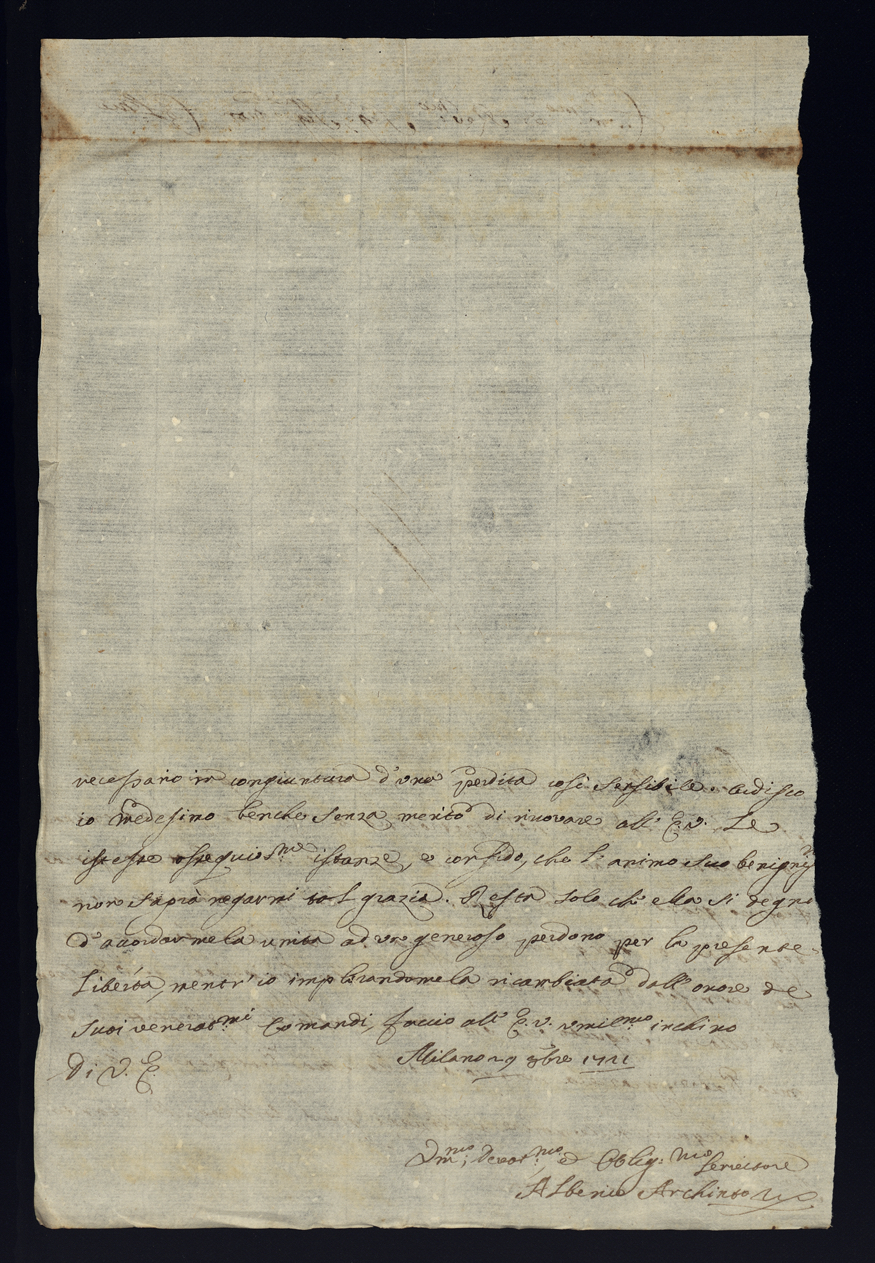 necessario in congiuntura d'una perdita così sensibile. Ardisco
io medesimo benche senza merito di rinovare all' E.V. Le
istesse ossequios.me istanze, e confido, che l'animo suo benigniss.mo
non saprà negarmi tal grazia. Resta solo ch'ella si degni
d'accordarmela unita ad un generoso perdono per la presente
Libertà, mentr'io implorandomela ricambiata dall'onore de
suoi venerat.mi Comandi, faccio all' E.V. umil.mo inchino
Di V. E. Milano 29 Xbre 1721
Devot.mo ed Oblig.mo Servitore
Alberico Archinto